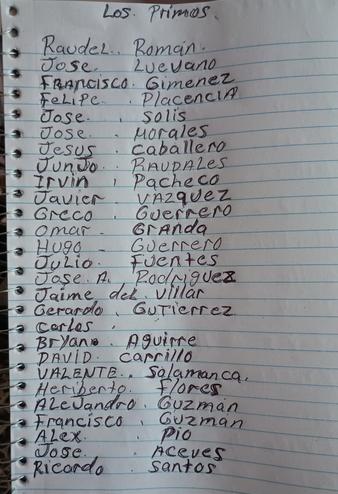 Los. Primos.
Raudel.. Roman.
Jose. Luevano
Francisco. Gimenez
Felipe. Placencia
Jose. . Solis
Jose. . Morales
Jesus . Caballero
Junjo . Raudales
Irvin . Pacheco
Javier . Vazquez
Greco . Guerrero
Omar - Granda
Hugo - Guerrero
Julio . Fuentes
Jose. A. Rodriguez
Jaime del Villar
Gerardo. Gutierrez
Carlos .
Bryano. Aguirre
David. Carrillo
Valente. Salamanca.
Heriberto. Flores
Alejandro. Guzman
Francisco. Guzman
Alex. . Pio
Jose. . Aceves
Ricordo . Santos